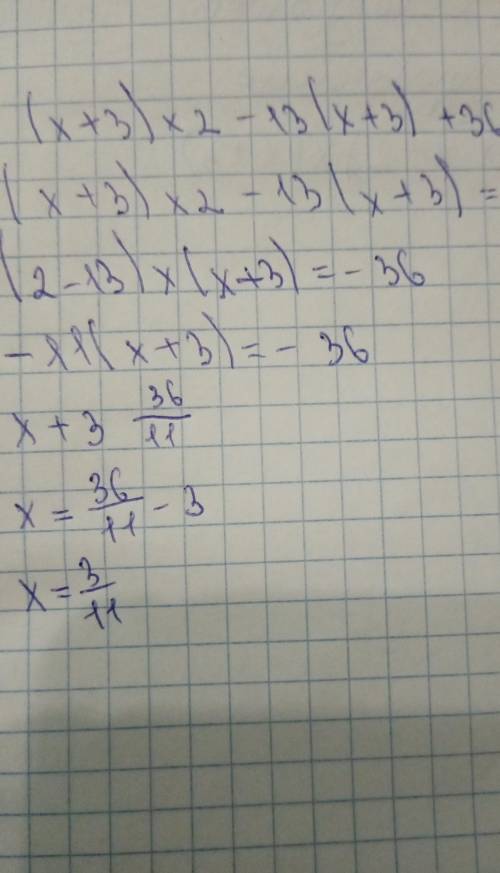 (x+3)×2-13(x+3)+36
(x+3)×2-13(x+3)=
(2-13)×(x+3)=-36
-11(x+3)=-36
x+3 36/11
x=36/11-3
x=3/11